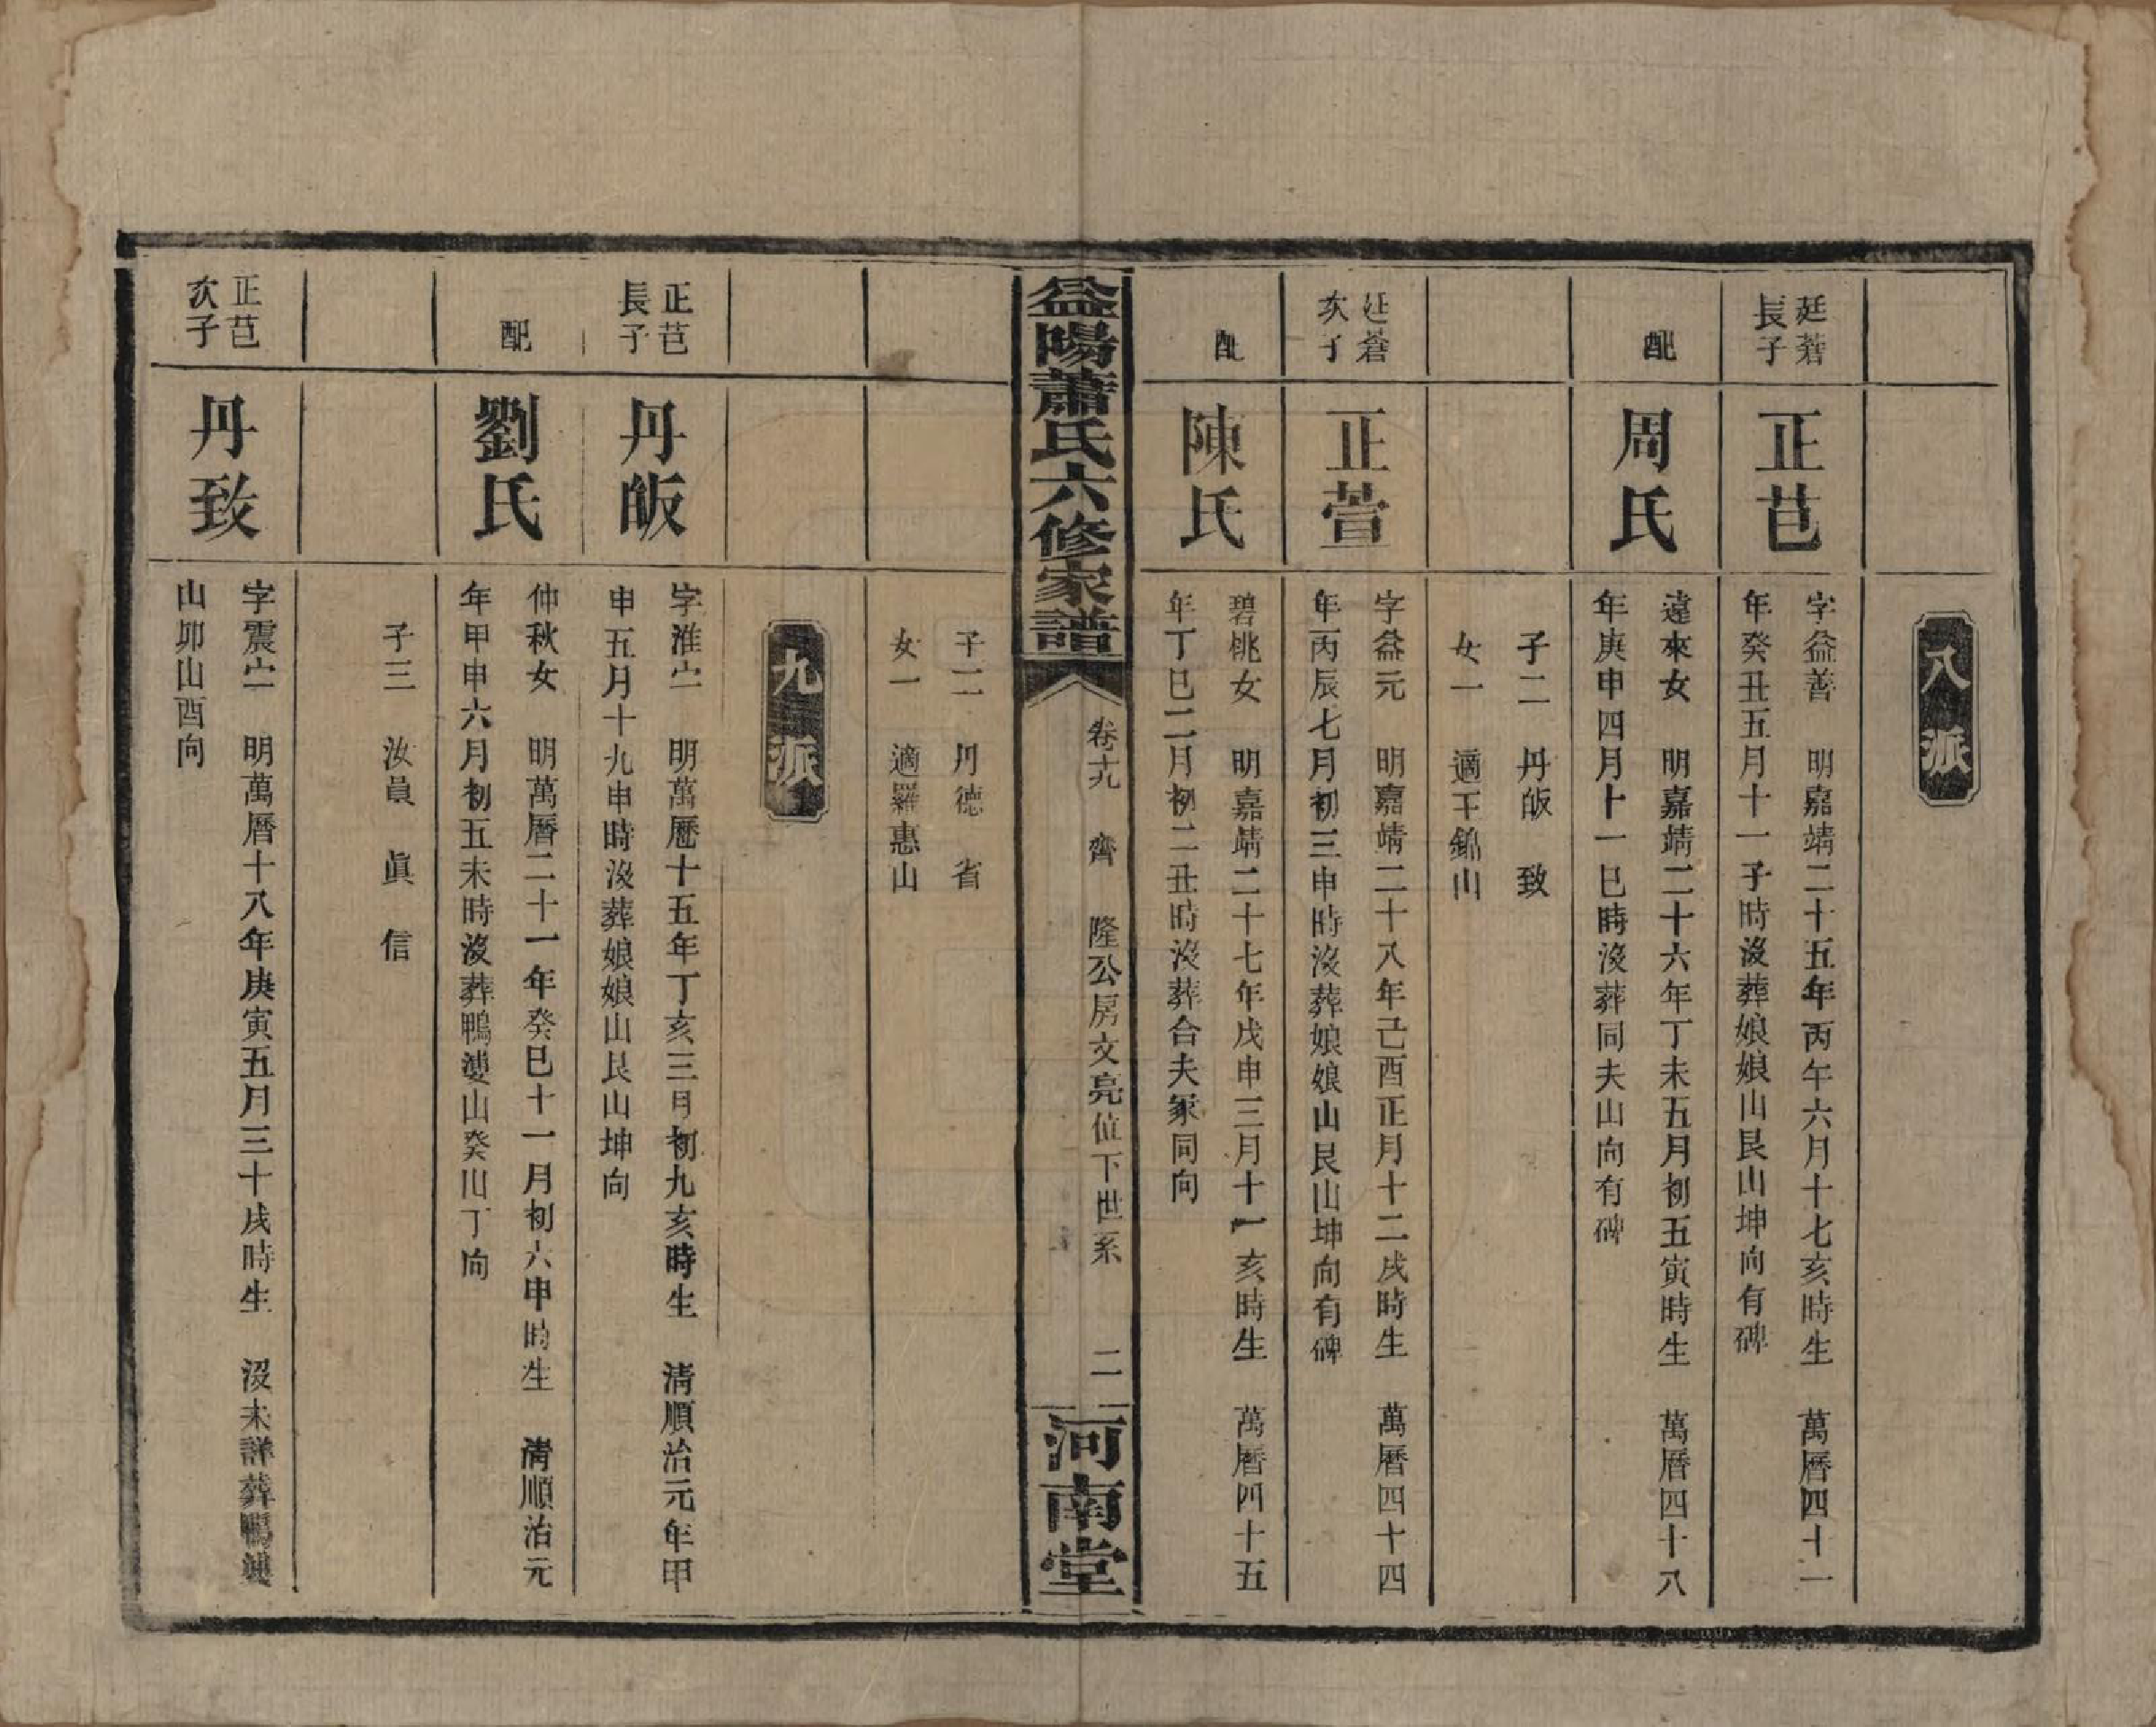 八派
廷蒼
長子
正芑
字益善　明嘉靖二十五年丙午六月十七亥時生　萬曆四十一
年癸丑五月十一子時沒葬娘娘山艮山坤向有碑
配
周氏
遠來女　明嘉靖二十六年丁未五月初五寅時生　萬曆四十八
年庚申四月十一巳時沒葬同夫山向有碑
子二　丹皈　致
女一　適王錦山
廷蒼
次子
正萱
字益元　明嘉靖二十八年己酉正月十二戌時生　萬曆四十四
年丙辰七月初三申時沒葬娘娘山艮山坤向有碑
配
陳氏
碧桃女　明嘉靖二十七年戊申三月十一亥時生　萬曆四十五
年丁巳二月初二丑時沒葬合夫冢同向
益陽蕭氏六修家譜
卷十九　齊　隆公房文亮位下世系　二
河南堂
子二　丹德　省
女一　適羅惠山
九派
正芑
長子
丹皈
字淮宇　明萬曆十五年丁亥三月初九亥時生　清順治元年甲
申五月十九申時沒葬娘娘山艮山坤向
配
劉氏
仲秋女　明萬曆二十一年癸巳十一月初六申時生　清順治元
年甲申六月初五未時沒葬鴨婆山癸山丁向
子三　汝員　眞　信
正芑
次子
丹致
字震宇　明萬曆十八年庚寅五月三十戌時生　沒未詳葬鴨婆
山卯山酉向